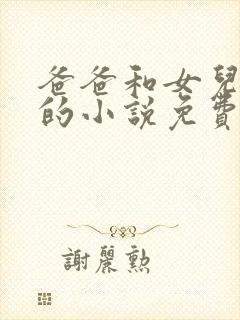 爸爸和女兒
的小說免費
謝麗勲